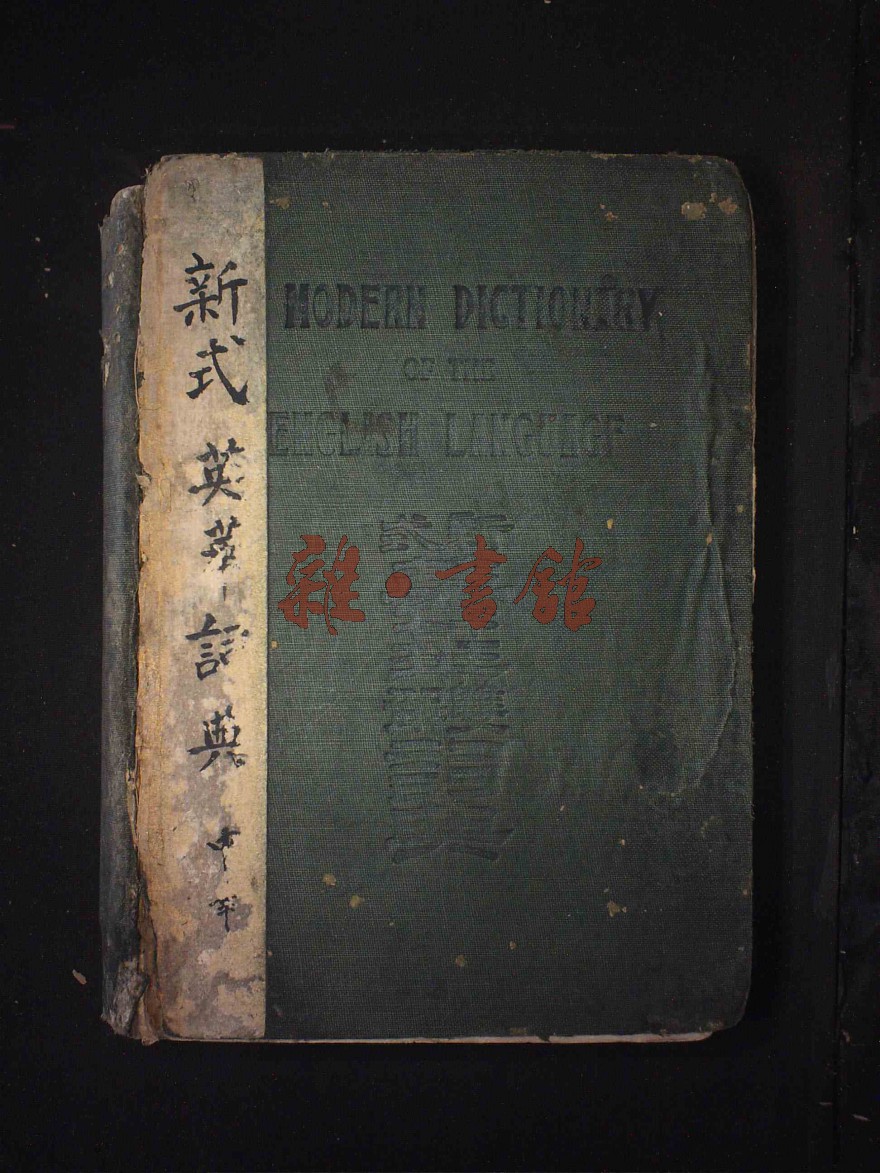 MODERN DICTIONARY
OF THE
ENGLISH LANGUAGE
新式英華詞典
雜·書館